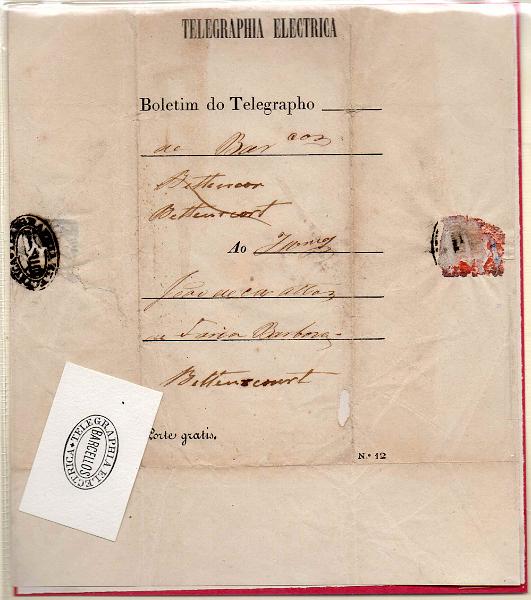 TELEGRAPHIA ELECTRICA
Boletim do Telegrapho
de Barcos
Bettencor
Bettencourt
Ao
de Faria Barbosa
Bettencourt
Porte gratis.
N.º 12
TELEGRAPHIA ELECTRICA
BARCELLOS